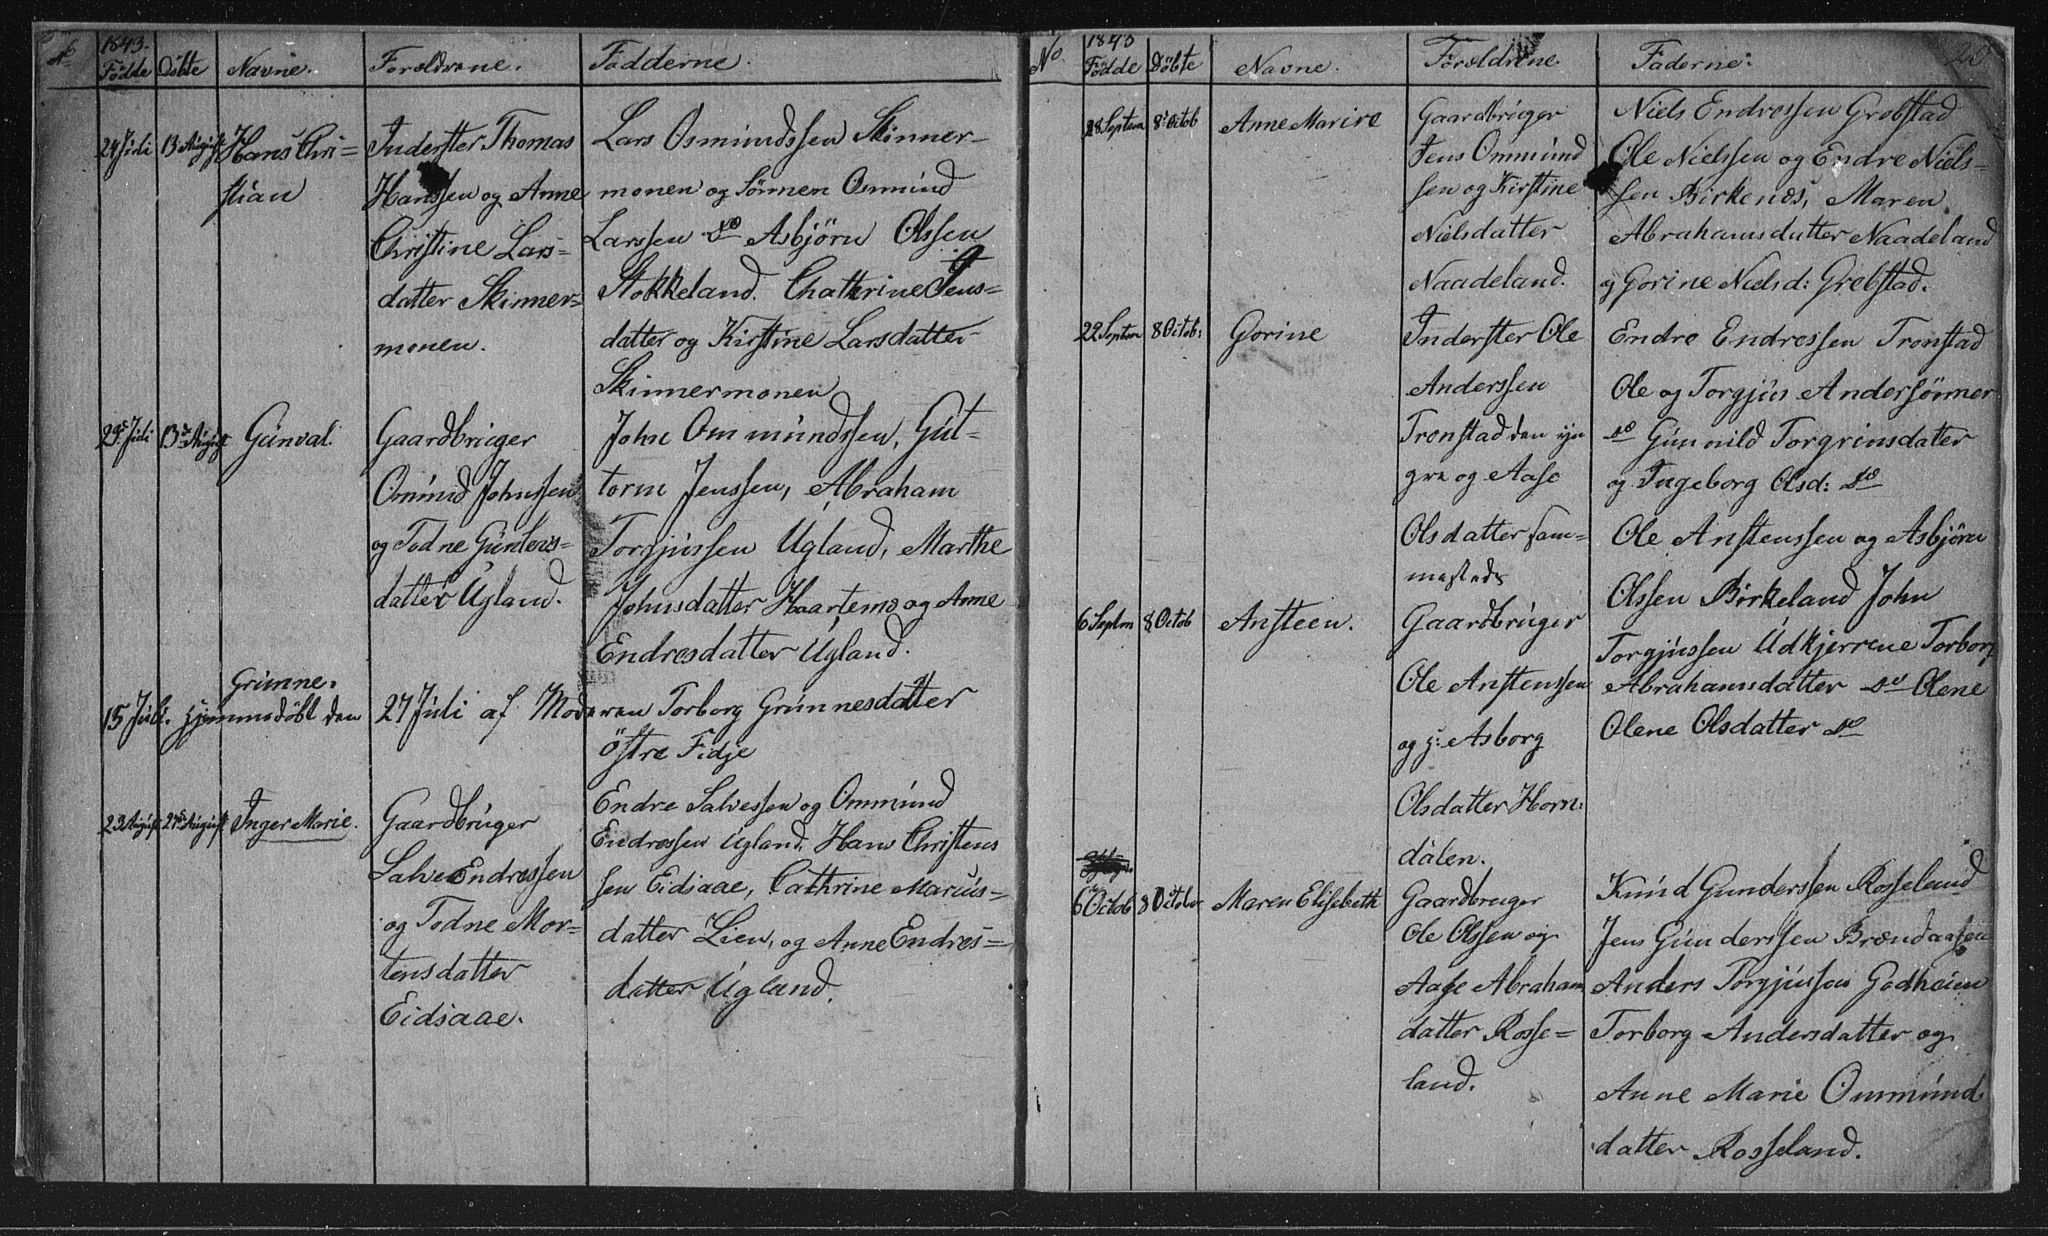 No
1843.
Fødde
Döbte
Navne.
Forældrene.
Fadderne.
24 Juli
13 August
Hans Chri-
stian
Inderster Thomas
Hanssen og Anne
Christine Lars-
datter Skinner-
monen.
Lars Osmundssen Skinner-
monen og Sönnen Osmund
Larssen do Asbjörn Olssen
Stokkeland. Chathrine Jens-
datter og Kirstine Larsdatter
Skinnermonen
29de Juli
13de August
Günval.
Gaardbruger
Omünd Johnssen
og Todne Günters-
datter Ugland.
John Ommündssen, Gut-
torm Jenssen, Abraham
Torgjussen Ugland, Marthe
Johnsdatter Haartemo og Anne
Endresdatter Ugland.
Grunne.
15 Juli. hjemmedöbt den 27 Juli af Moderen Torborg Grunnesdatter
östre Fidje
23 August
27de August
Inger Marie.
Gaardbrüger
Salve Endressen
og Todne Mor-
tensdatter
Eidsaae.
Endre Salvessen og Ommund
Endressen Ugland, Hans Christens
sen Eidsaae, Cathrine Marcus-
datter Lien, og Anne Endres-
datter Ugland.
No
1843
Födde
Döbte
Navne.
Forældrene.
Faderne:
20
28 Septem
8de Octob
Anne Marire
Gaardbruger
Jens Ommund
sen og Kirstine
Nielsdatter
Naadeland.
Niels Endressen Grebstad
Ole Nielssen og Endre Niels-
sen Birkenes, Maren
Abrahamsdatter Naadeland
og Gorine Nielsd: Grebstad.
22 Septem
8 Octob:
Gorine
Inderster Ole
Anderssen
Tronstad den yn
gre og Aase
Olsdatter sam-
mesteds
Endre Endressen Tronstad
Ole og Torgjus Andersönner
do Gunnild Torgrimsdater
og Ingeborg Olsd: do
6 Septem
8 Octob
Ansteen.
Gaardbrüger
Ole Anstenssen
og h: Asborg
Olsdatter Horn:
dalen.
Ole Anstenssen og Asbjörn
Olssen Birkeland John
Torgjussen Udkjerrene Torborg
Abrahamsdatter do Olene
Olene Olsdatter do
6te Octob
8 October
Maren Elisebeth
Gaardbruger
Ole Olssen og
Aase Abraham
datter Rosse-
land.
Knud Gunderssen Rosseland
Jens Gunderssen Brændaasen
Anders Torgjussen Godheien
Torborg Andersdatter og
Anne Marie Ommund
datter Rosseland.